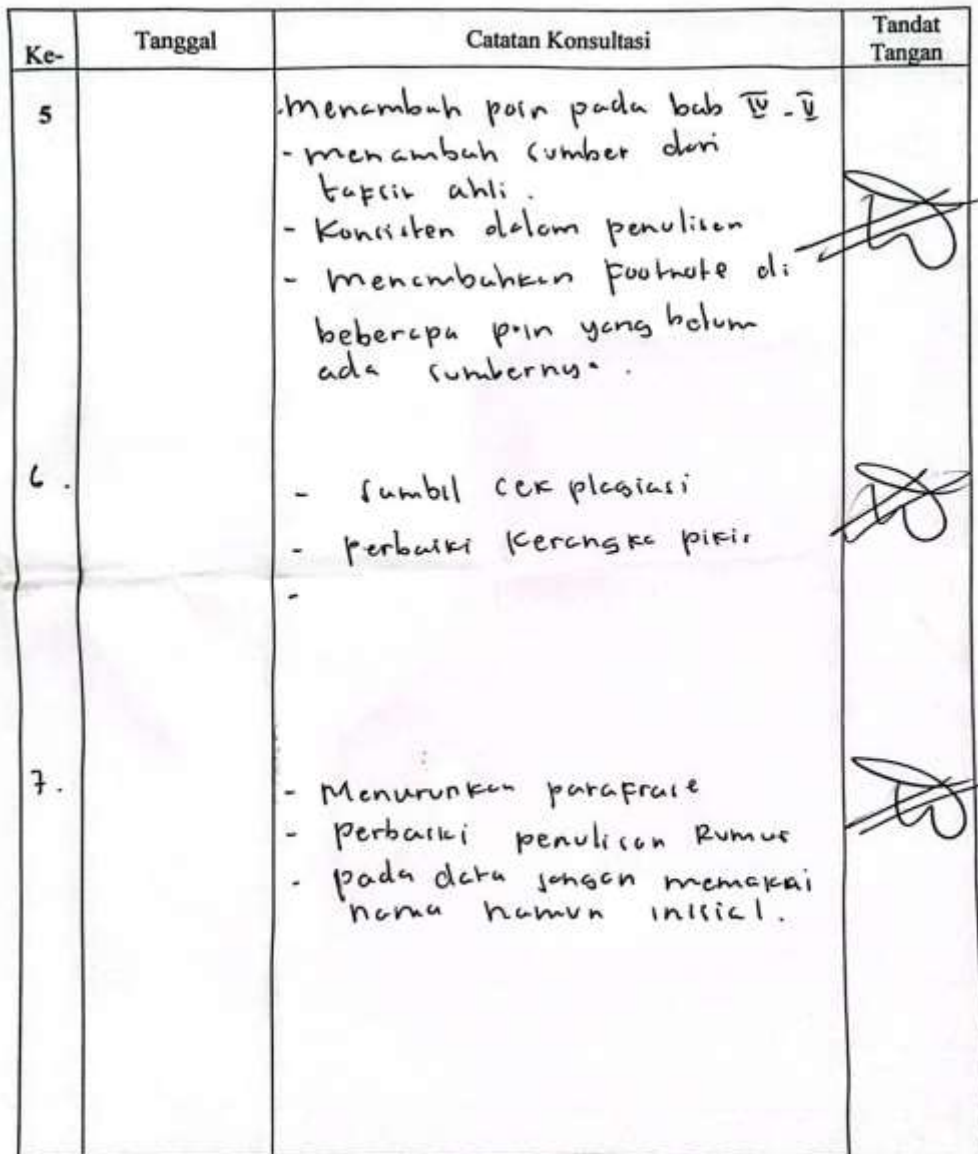 Ke-
Tanggal
Catatan Konsultasi
Tandat
Tangan
5
- Menambah poin pada bab IV - V
- menambah sumber dari
tafsir ahli.
- Konsisten dalam penulisan
- Menambahkan Footnote di
beberapa poin yang belum
ada sumbernya.
6.
- Sambil cek plagiasi
- Perbaiki Kerangka pikir
-
7.
- Menurunkan parafrase
- perbaiki penulisan Rumus
- pada data jangan memakai
nama namun inisial.